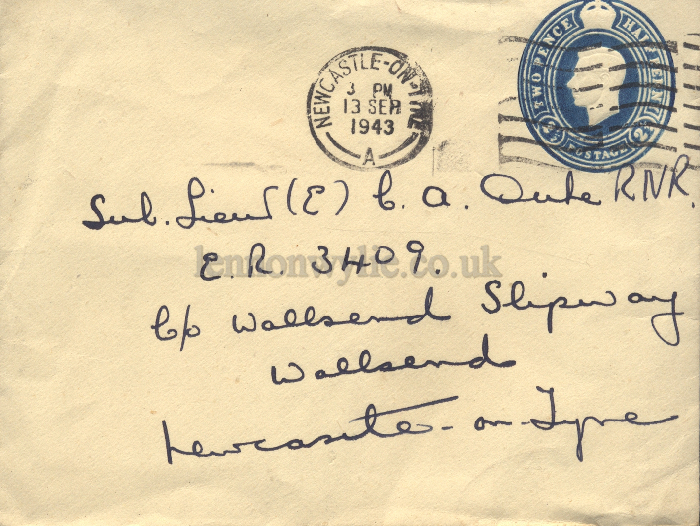 TWO PENCE HALFPENNY
2½ POSTAGE 2½
NEWCASTLE-ON-TYNE
3 PM
13 SEP
1943
A
Sub. Lieut (E) C. A. RNR.
E.R. 3409.
lennonwylie.co.uk
C/o Wallsend Slipway
Wallsend
Newcastle-on-Tyne